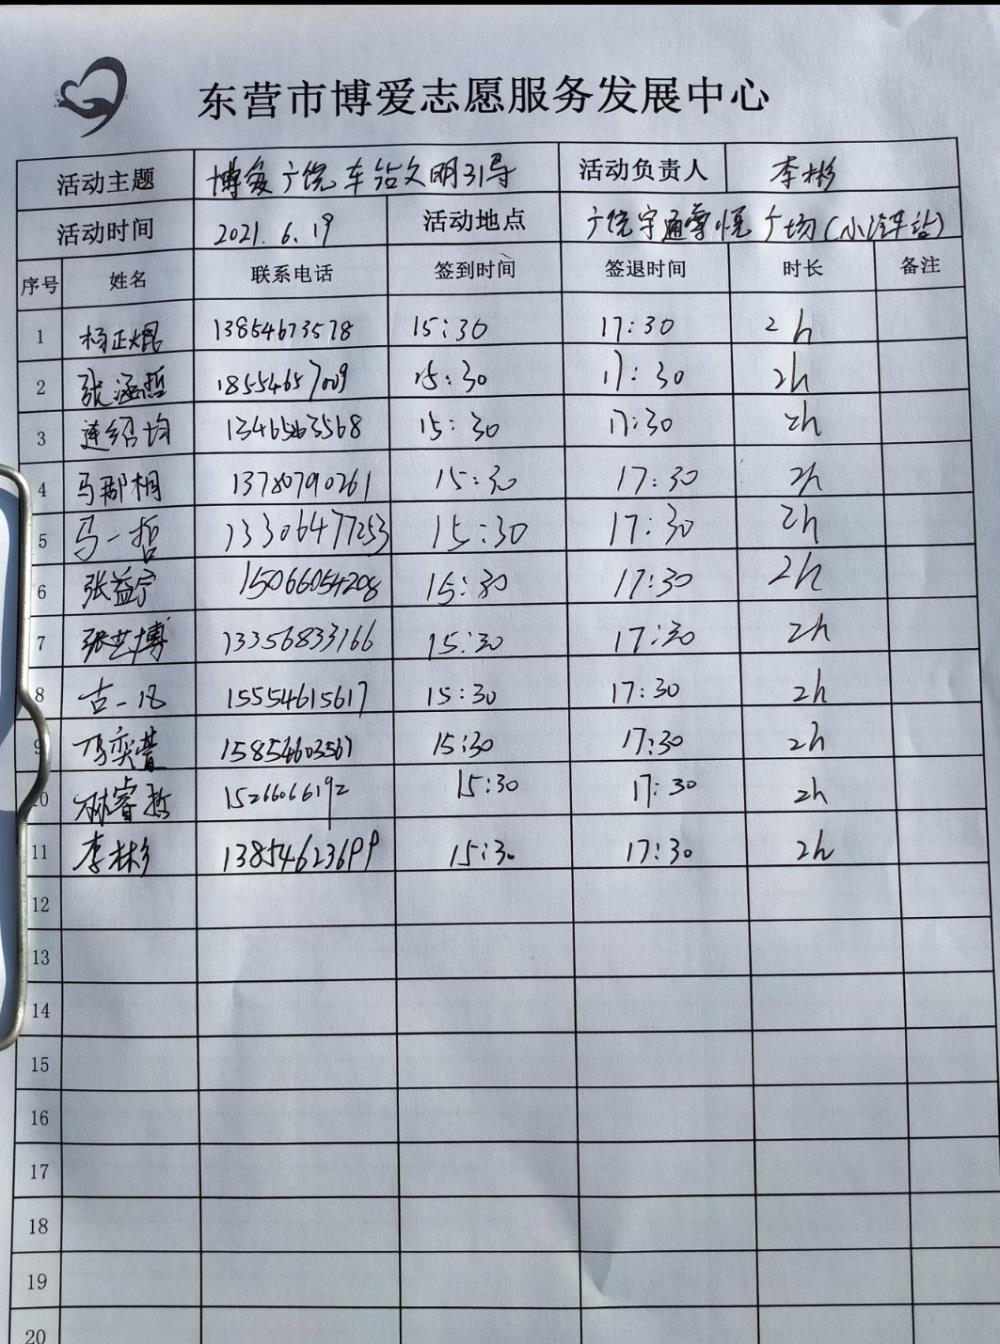 东营市博爱志愿服务发展中心
活动主题 博爱广饶车站文明引导 活动负责人 李彬
活动时间 2021.6.19 活动地点 广饶宇通尊悦广场(小汽车站)
序号 姓名 联系电话 签到时间 签退时间 时长 备注
1 杨正焜 13854673578 15:30 17:30 2h
2 张涵哲 18554657009 15:30 17:30 2h
3 连绍均 13465635568 15:30 17:30 2h
4 马那桐 13780790261 15:30 17:30 2h
5 马一哲 13306477253 15:30 17:30 2h
6 张益宁 15066054208 15:30 17:30 2h
7 张艺博 13356833166 15:30 17:30 2h
8 古一凡 15554615617 15:30 17:30 2h
9 15854603561 15:30 17:30 2h
10 睿哲 15266066192 15:30 17:30 2h
11 李彬 13854623699 15:30 17:30 2h
12
13
14
15
16
17
18
19
20